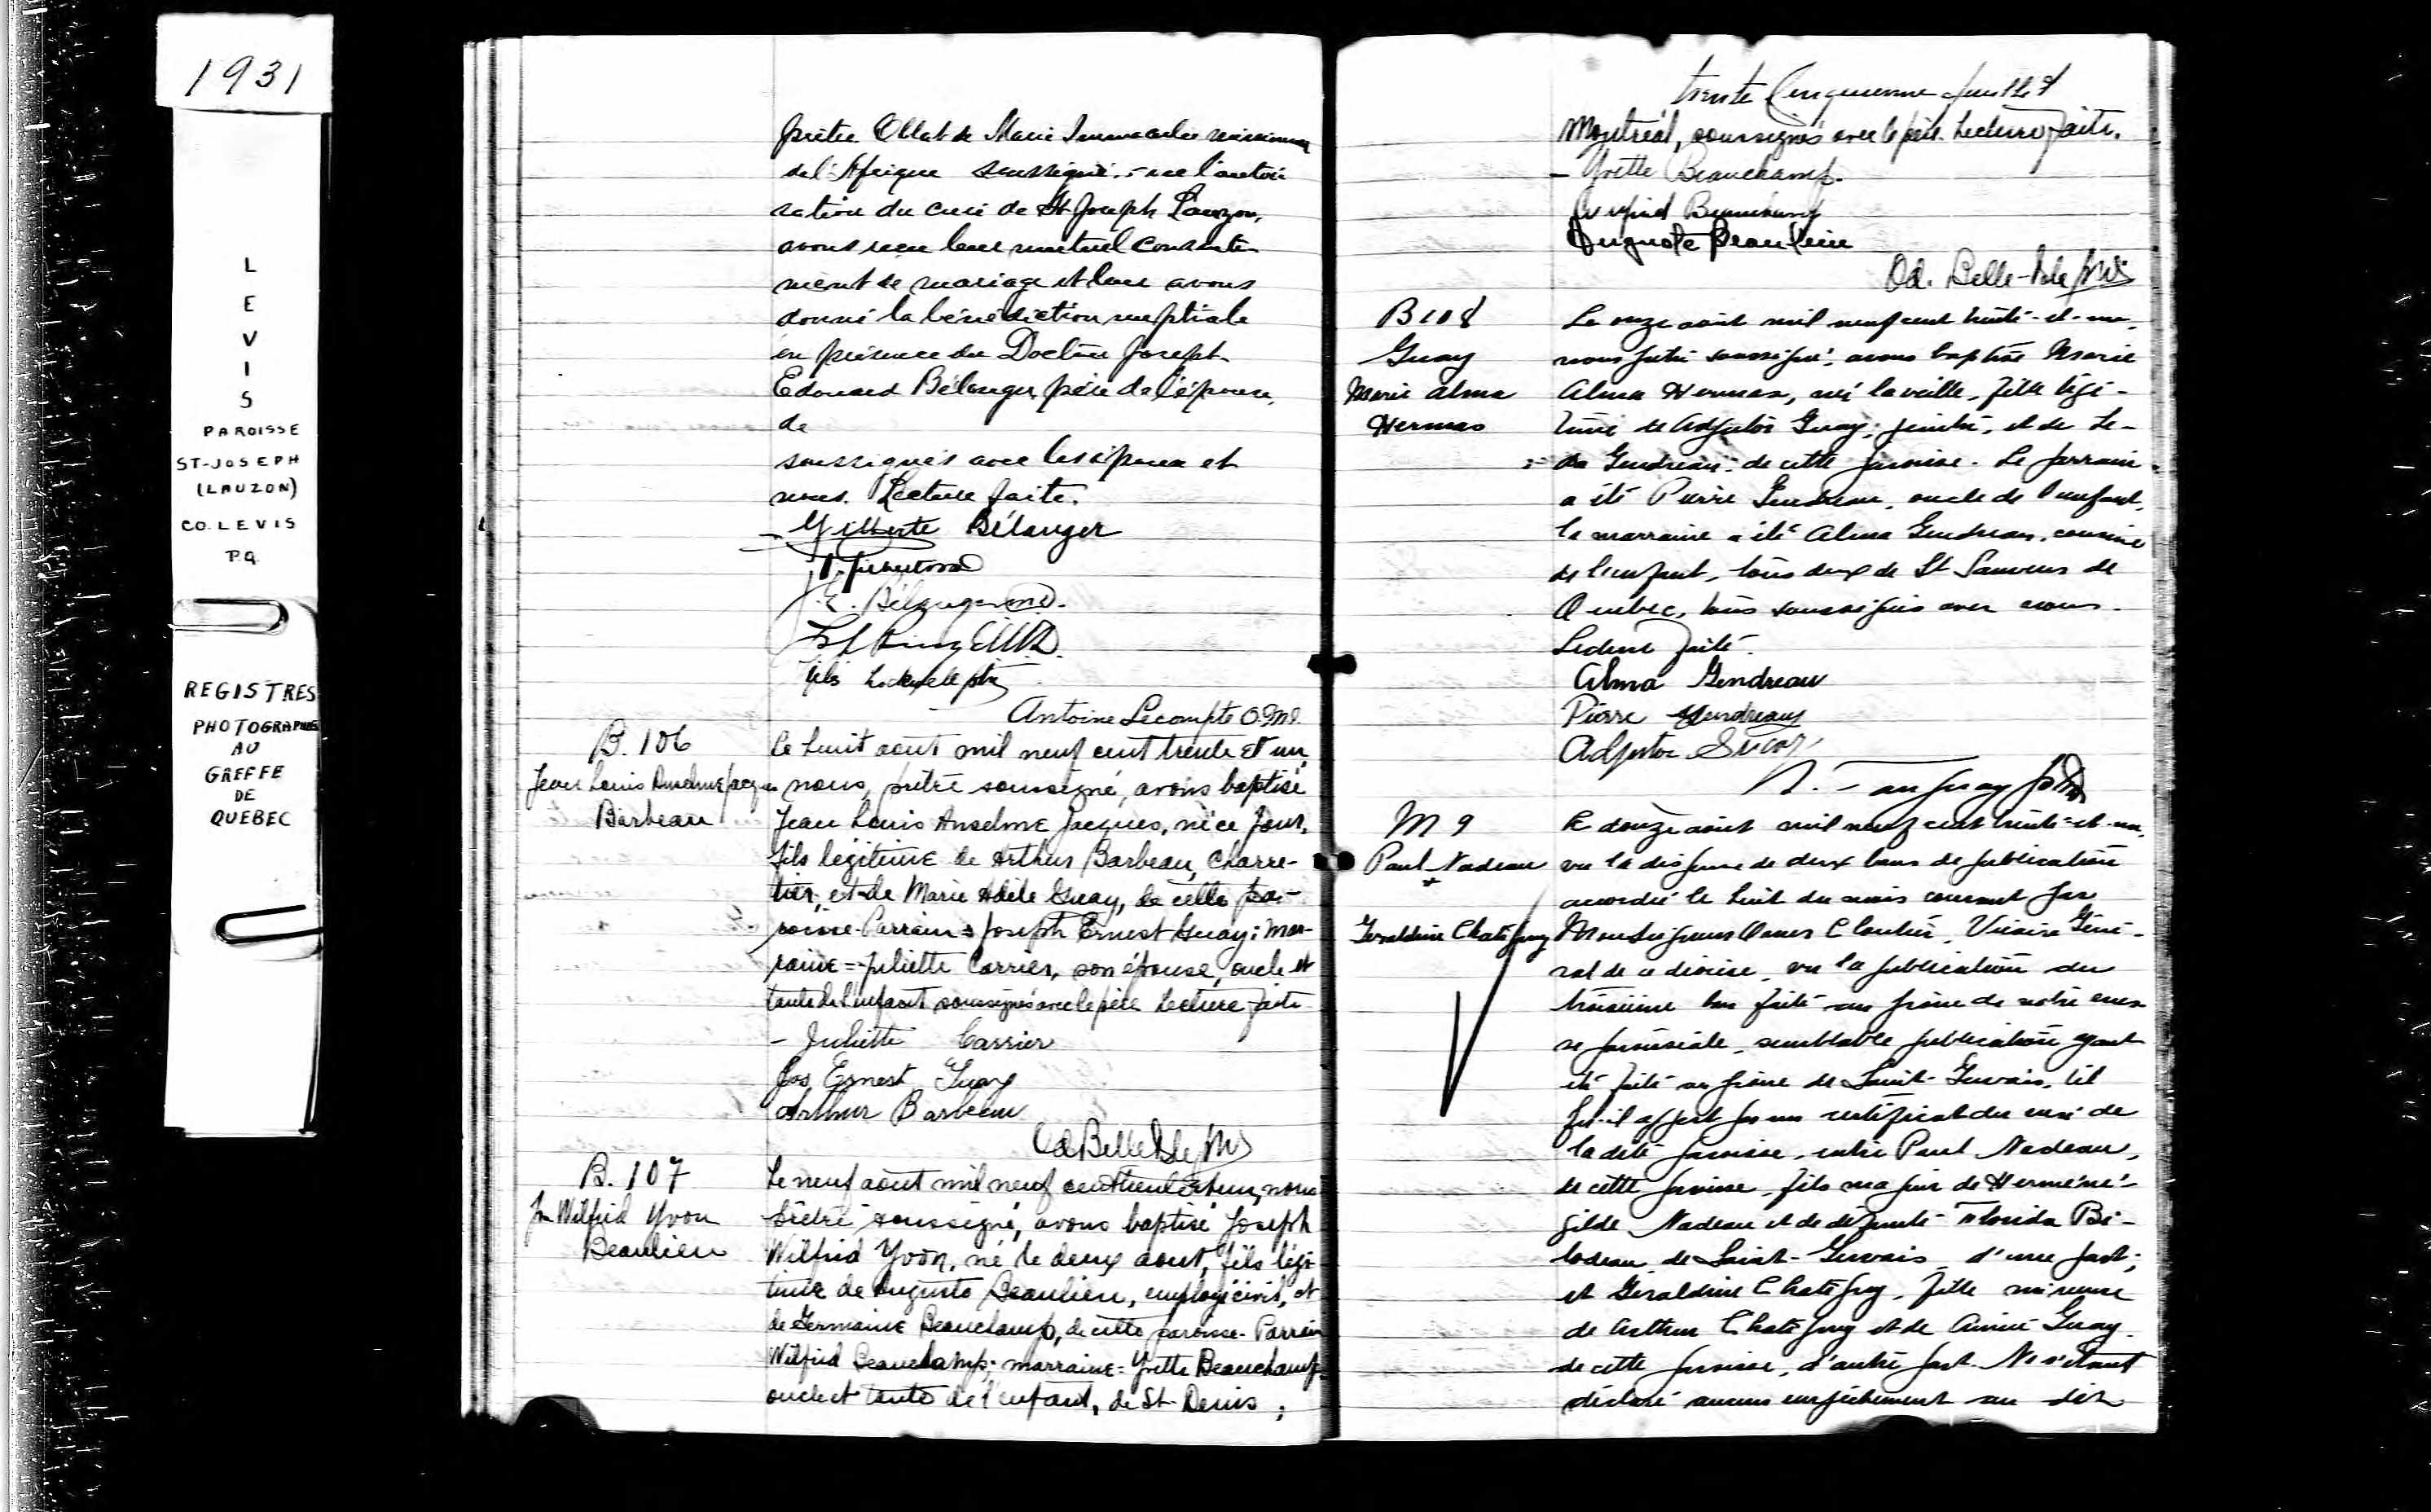 1931
L
E
V
I
S
PAROISSE
ST-JOSEPH
(LAUZON)
CO. LEVIS
P.Q.
REGISTRES
PHOTOGRAPHIES
AU
GREFFE
DE
QUEBEC
prêtre Oblat de Marie Immaculée missionnaire
de l'Afrique soussigné, l'autori
sation du curé de St Joseph Lauzon,
avons reçu leur mutuel consente
ment de mariage et leur avons
donné la bénédiction nuptiale
en présence du Docteur Joseph
Edouard Bélanger, père de l'épouse,
de
soussignés avec les époux et
nous. Lecture faite.
Gilberte Bélanger
J.E. Bélanger m.d.
Antoine Lecompte O.M.I.
B. 106
Jean Louis Anselme Jacques
Barbeau
Le huit août mil neuf cent trente et un,
nous, prêtre soussigné, avons baptisé
Jean Louis Anselme Jacques, né ce jour,
fils légitime de Arthur Barbeau, charre-
tier, et de Marie Adèle Guay, de cette pa-
roisse. Parrain = Joseph Ernest Guay; mar-
raine = Juliette Carrier, son épouse, oncle et
tante de l'enfant soussignés avec le père. Lecture faite
- Juliette Carrier
Jos Ernest Guay
Arthur Barbeau
Od Belle-Isle Ptre
B. 107
Jos Wilfrid Yvon
Beaulieu
Le neuf août mil neuf cent trente et un, nous
prêtre soussigné, avons baptisé Joseph
Wilfrid Yvon, né le deux août, fils légi-
time de Auguste Beaulieu, employé civil, et
de Germaine Beauchamp, de cette paroisse. Parrain
Wilfrid Beauchamp; marraine = Yvette Beauchamp
oncle et tante de l'enfant, de St-Denis,
trente cinquième feuillet
Montréal, soussignés avec le père. Lecture faite.
- Yvette Beauchamp.
Wilfrid Beauchamp
Auguste Beaulieu
Od. Belle-Isle Ptre
B 108
Guay
Marie Alma
Hermas
Le onze août mil neuf cent trente-et-un,
nous prêtre soussigné, avons baptisé Marie
Alma Hermas, née la veille, fille légi-
time de Adjutor Guay, peintre, et de Le-
da Gendreau de cette paroisse. Le parrain
a été Pierre Gendreau, oncle de l'enfant,
la marraine a été Alma Gendreau, cousine
de l'enfant, tous deux de St Sauveur de
Québec, tous soussignés avec nous.
Lecture faite.
Alma Gendreau
Pierre Gendreau
Adjutor Guay
M 9
Paul Nadeau
+
Géraldine Chatigny
Le douze août mil neuf cent trente-et-un,
vu la dispense de deux bans de publication
accordée le huit du mois courant par
Monseigneur Omer Cloutier, Vicaire Géné-
ral de ce diocèse, vu la publication du
troisième ban faite au prône de notre messe
paroissiale, semblable publication ayant
été faite au prône de Saint-Gervais, tel
qu'il appert par un certificat du curé de
la dite paroisse, entre Paul Nadeau,
de cette paroisse, fils majeur de Herméné-
gilde Nadeau et de défunte Florida Bi-
lodeau de Saint-Gervais d'une part;
et Géraldine Chatigny, fille mineure
de Arthur Chatigny et de Aimée Guay
de cette paroisse, d'autre part. Ne s'étant
déclaré aucun empêchement au dit